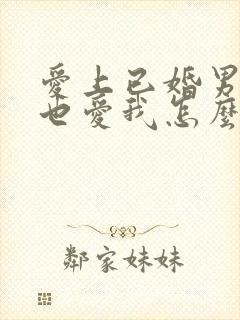 愛上已婚男
也愛我怎麼
鄰家妹妹